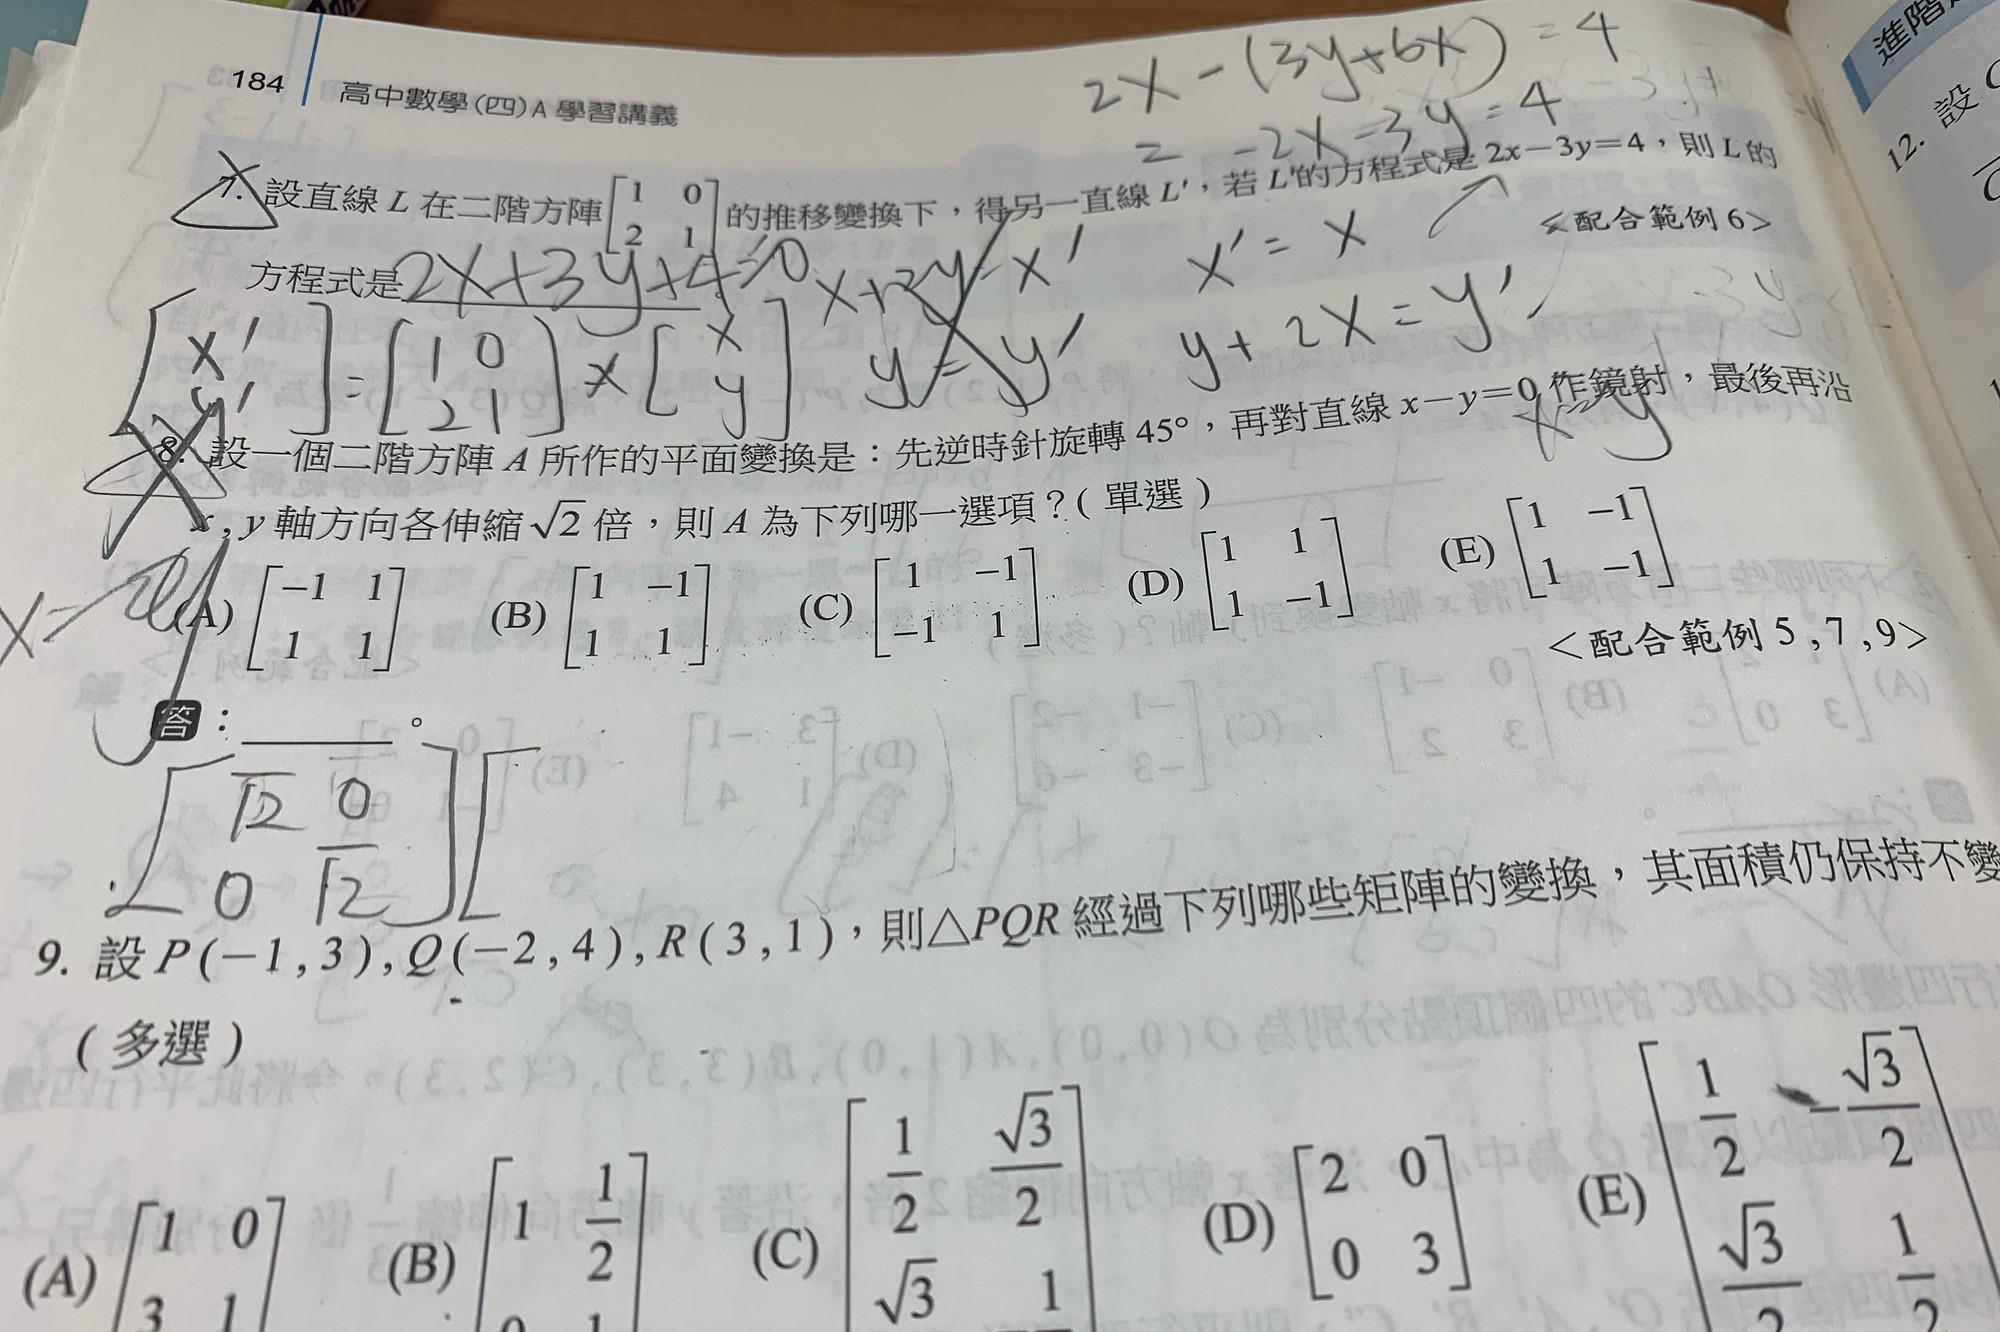 184 高中數學(四)A 學習講義
2x-(3y+6x)=4
-2x-3y=4
7. 設直線 L 在二階方陣[1 0 2 1]的推移變換下，得另一直線 L'，若 L'的方程式是 2x-3y=4，則 L 的
方程式是 2x+3y+4=0
<配合範例 6>
x+2y=x'
y=y'
x'=x
y+2x=y'
[x' y']=[1 0 2 1]×[x y]
x=y
8. 設一個二階方陣 A 所作的平面變換是：先逆時針旋轉 45°，再對直線 x-y=0 作鏡射，最後再沿
x,y 軸方向各伸縮 √2 倍，則 A 為下列哪一選項？(單選)
(A) [-1 1 1 1] (B) [1 -1 1 1] (C) [1 -1 -1 1] (D) [1 1 1 -1] (E) [1 -1 1 -1]
<配合範例 5,7,9>
答：。
[√2 0 0 √2][
9. 設 P(-1,3),Q(-2,4),R(3,1)，則△PQR 經過下列哪些矩陣的變換，其面積仍保持不變
(多選)
(A) [1 0 3 1 (B) [1 1/2 0 1 (C) [1/2 √3/2 √3 1 (D) [2 0 0 3] (E) [1/2 -√3/2 √3/2 1/2
進階
12. 設